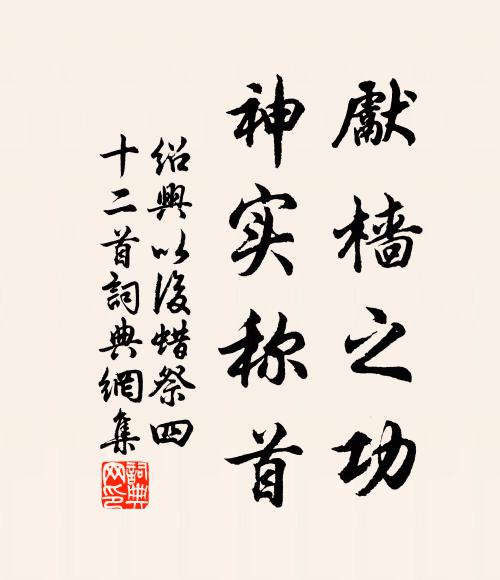 獻檣之功
神实称首
紹興以後蜡祭四
十二首詞典網集
詞典
网印